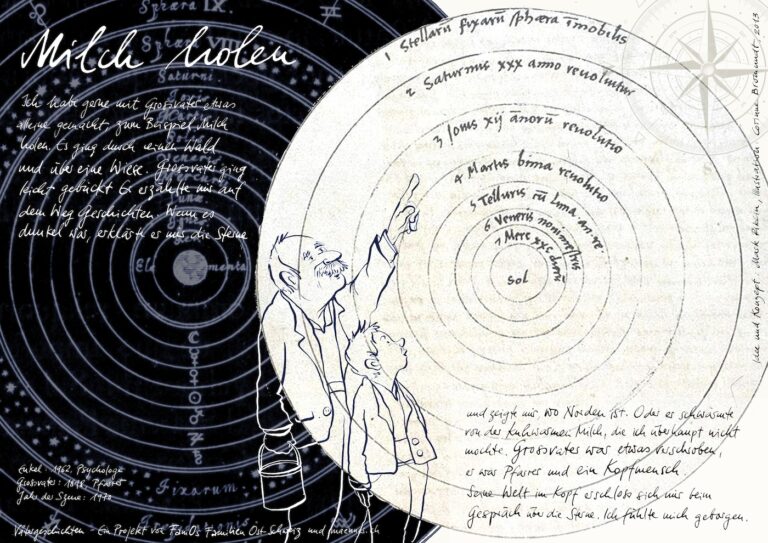 Milch holen
Ich habe gerne mit Grossvater etwas
alleine gemacht, zum Beispiel Milch
holen. Es ging durch einen Wald
und über eine Wiese. Grossvater ging
leicht gebückt. Er erzählte mir auf
dem Weg Geschichten. Wenn es
dunkel war, erklärte er mir die Sterne
und zeigte mir, wo Norden ist. Oder er schwärmte
von der kuhwarmen Milch, die ich überhaupt nicht
mochte. Grossvater war etwas verschroben,
er war Pfarrer und ein Kopfmensch.
Seine Welt im Kopf erschloss sich mir beim
Gespräch über die Sterne. Ich fühlte mich geborgen.
Enkel: 1962, Psychologe
Grossvater: 1898, Pfarrer
Jahr der Szene: 1970
Vätergeschichten - Ein Projekt von FamOS Familien Ost Schweiz und
Idee und Konzept: Mark Riklin, Illustration: Corinne Bromundt, 2013
1 Stellarū fixarū sphæra imobilis
2 Saturnus xxx anno revolvitur
3 Jovis xij annorū revolutio
4 Martis bima revolutio
5 Telluris
6 Veneris nonimestris
7 Merc
Sol
Sphæra IX.
Sphæra VIII
Saturni
Elementa
Fixarum